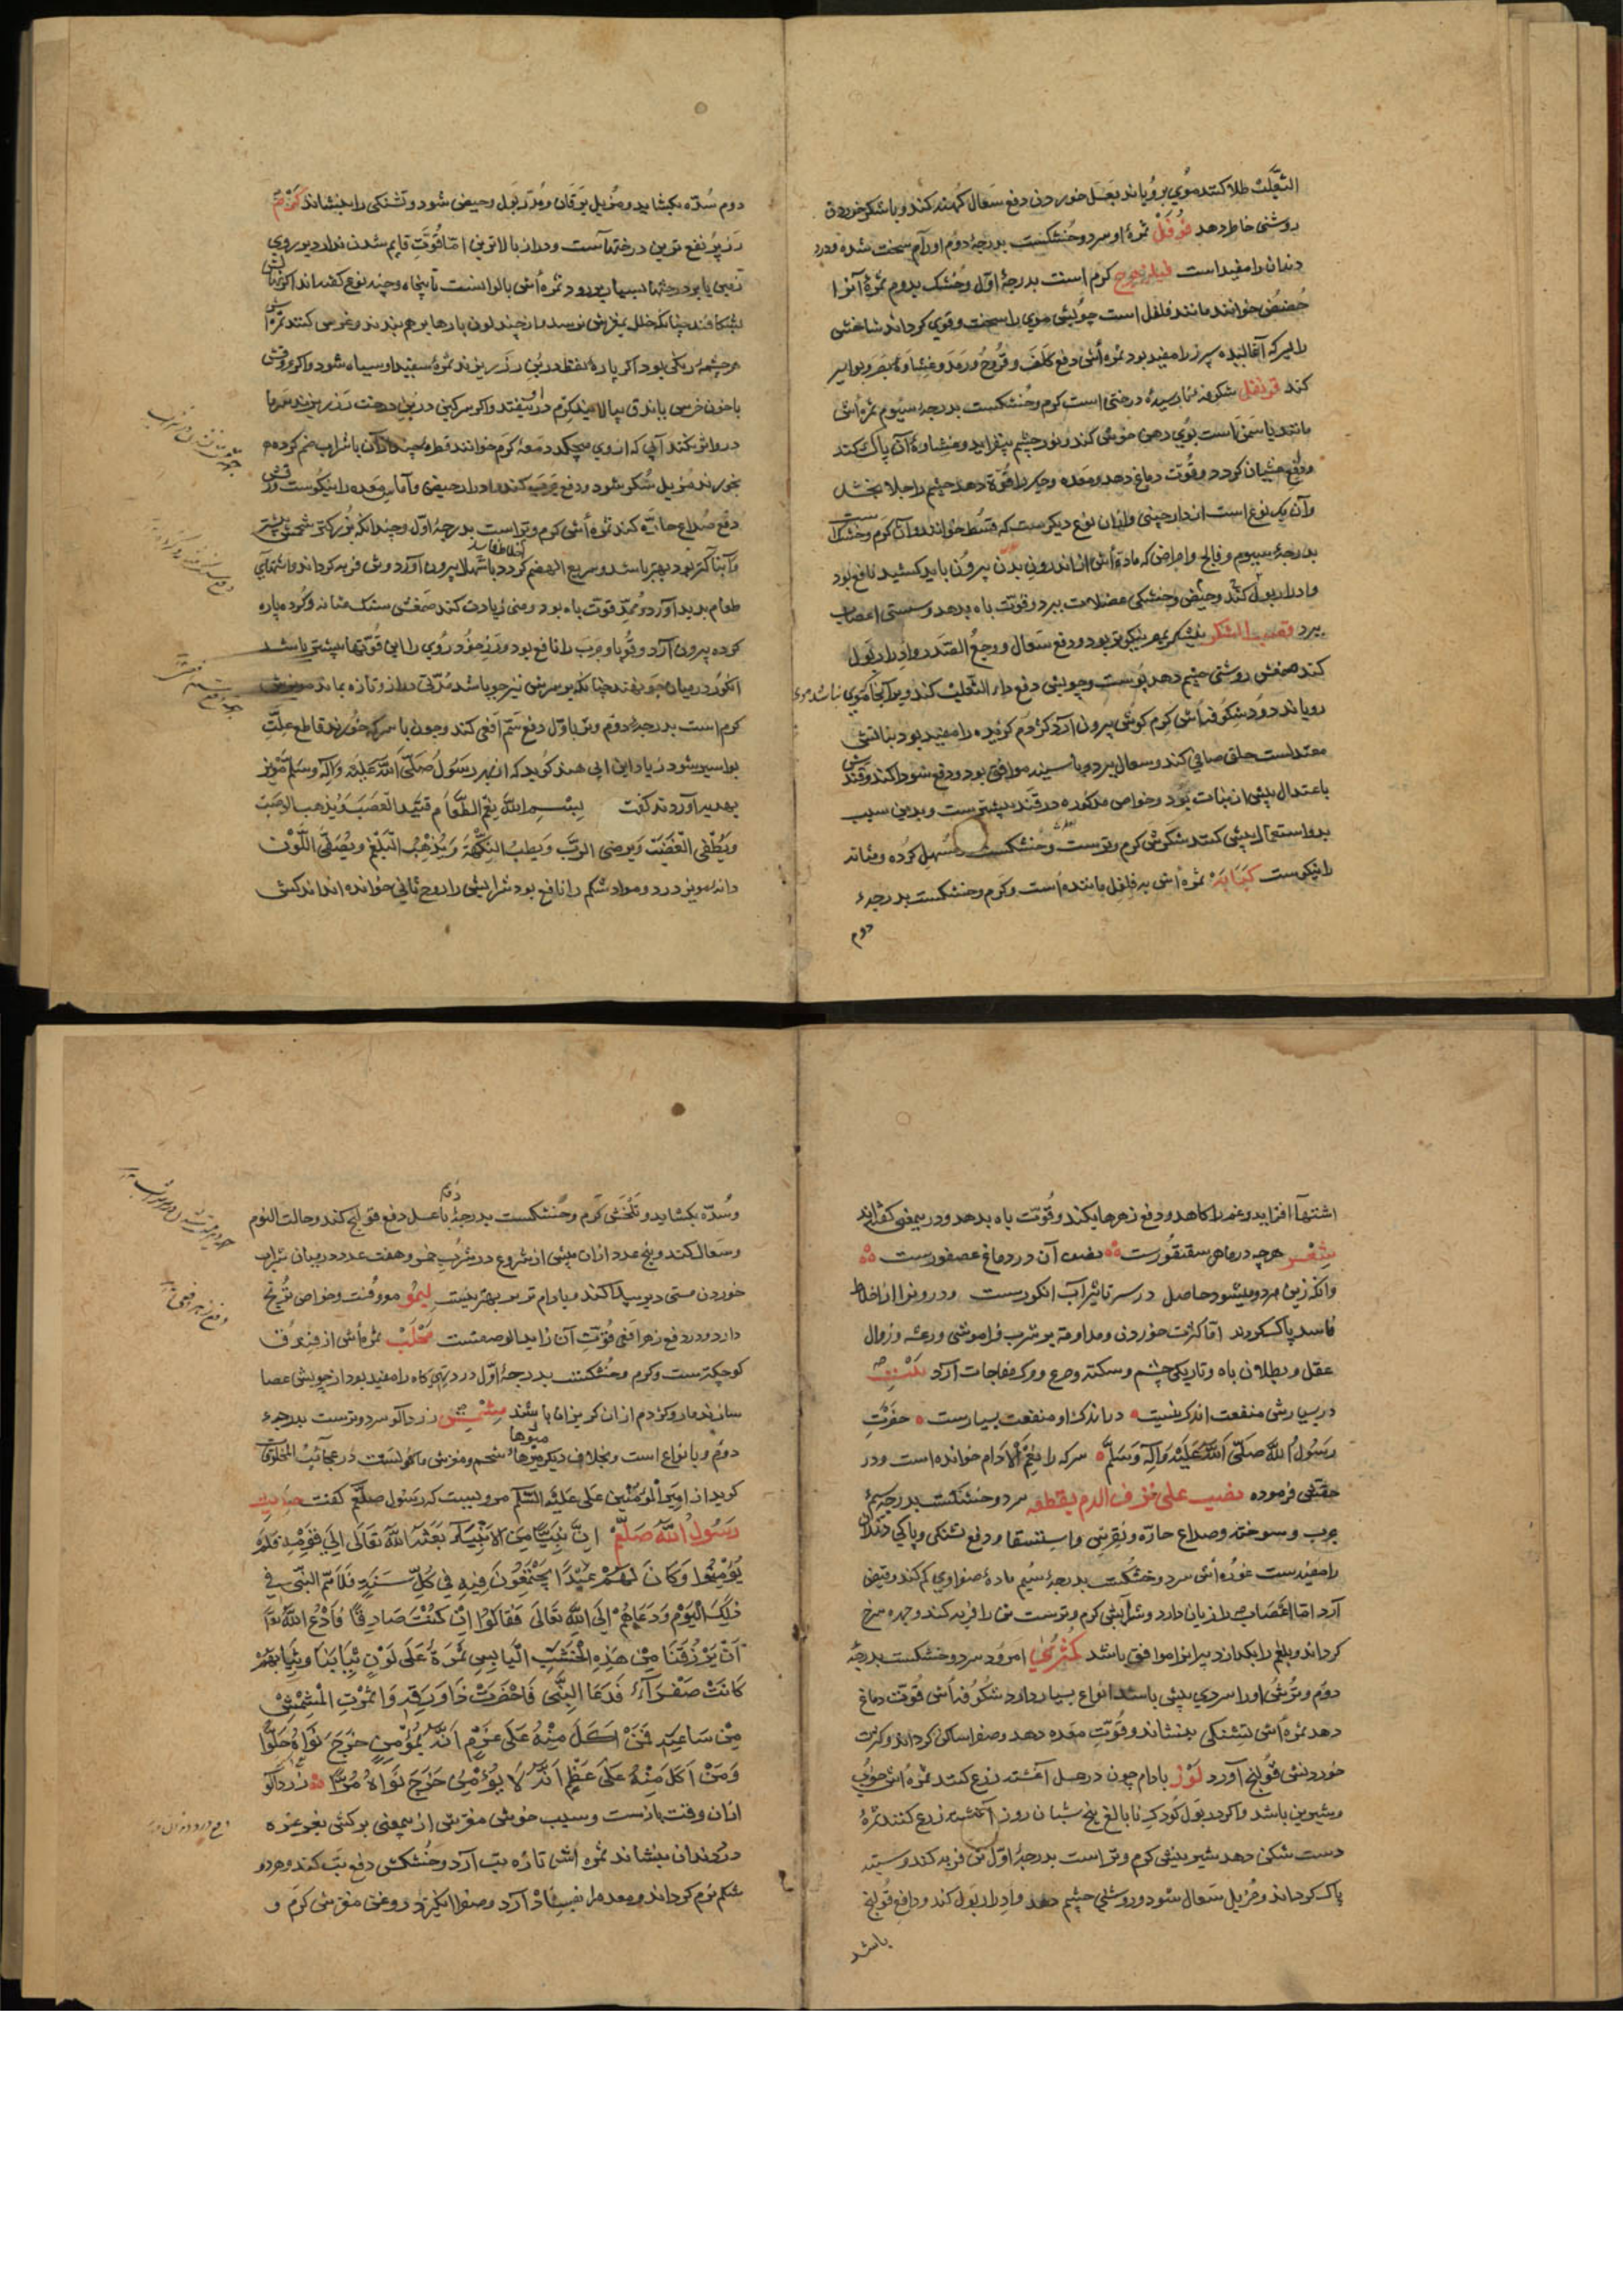 الثعلب طلا کنند موی برویاند بعسل خوردن دفع سعال کهنه کند و با شکر خوردن
روشنی خاطر دهد فوفل ثمرهٔ او سرد و خشکست بدرجهٔ دوم اورام سخت شده و درد
دندان را مفید است فیلزهرج کرم است بدرجهٔ اول و خشک بدوم ثمرهٔ آنرا
حضض خوانند مانند فلفل است چوبش موی را سخت و قوی کرداند شاخش
را بسرکه آغالیده سپرز را مفید بود ثمره اش دفع کلف و قروح و رمد و غشاوهٔ بصر و بواسیر
کند قرنفل شکوفهٔ نارسیده درختی است کرم و خشکست بدرجهٔ سیوم ثمره اش
مانند یاسمن است بوی دهن خوش کند و نور چشم بیفزاید و غشاوهٔ آن پاک کند
و دفع غشیان کردد و قوت دماغ دهد و معده و جکر را قوة دهد چشم را جلا بخشد
وآن یک نوع است از دارچینی و ازان نوع دیکرست که قسط خوانند و آن کرم و خشک است
بدرجهٔ سیوم و فالج و امراض که ماده اش از اندرون بدن بیرون باید کشید نافع بود
و ادرار بول کند و حیض و خشکی عضلات ببرد و قوت باه بدهد و سستی اعصاب
ببرد قصب السکر نیشکر نیکوتر بود و دفع سعال و وجع الصدر و ادرار بول
کند صمغش روشنی چشم دهد پوست و چوبش دفع دار الثعلب کند و بر آنجا که موی نباشد موی
رویاند دود شکوفه اش کرم کوش بیرون آرد کژدم کزیده را مفید بود نباتش
معتدلست حلق صافی کند و سعال ببرد و با سینه موافق بود و دفع سودا کند و قندش
باعتدال بیش از نبات بود و خواص مذکوره در قند بیشترست و بدین سبب
بدو استعمال بیش کنند شکرش کرم و ترست و خشکست مسهل کرده و مثانه
را نیکوست کبابه ثمره اش به فلفل ماننده است و کرم و خشکست بدرجهٔ
دوم
دوم سده بکشاید و مزیل یرقان و مدر بول و حیض شود و تشنکی را بنشاند کرم
رز پر نفع ترین درختهاست و دراز بالا ترین اما قوت قایم شدن ندارد بر روی
زمین یا بر درختها سیما برود و ثمره اش بالوانست تا پنجاه و چند نوع کفته اند اکر شاخش
بشکافند چنانکه خلل بمغزش نرسد و از چند لون پارها بر هم بندند و غرس کنند ثمره اش
هر چشمه رنکی بود اکر پارهٔ نفط در بن رز ریزند ثمرهٔ سفید او سیاه شود و اکر ورقش
با خون خرس باندق بیالایند کرم در او نیفتد و اکر سرکین در بن درخت رز ریزند سرما
درو اثر نکند آبی که از وی میچکد دمعة کرم خوانند قطرهٔ چند از آن با شراب ضم کرده
بخورند مزیل سکر شود و دفع جرب کند و ادرار حیض و آماس معده را نیکوست ورقش
دفع صداع حاره کند ثمره اش کرم و تر است بدرجهٔ اول و چندانکه بزرکتر شحمش بیشتر
و آبناکتر بود بهتر باشد و سریع الهضم کردد باسهال اخلاط فاسد بیرون آورد و تن فربه کرداند و اشتهای
طعام بدید آورد و ممد قوت باه بود و منی زیادت کند صمغش سنک مثانه و کرده پاره
کرده بیرون آرد و قوبا و جرب را نافع بود و رز خود روی را این قوتها بیشتر باشد
انکور در میان جو نهند چنانکه بر سرش نیز جو باشد مدتی دراز تازه بماند مویزش
کرم است بدرجهٔ دوم و تر باول دفع سم افعی کند و چون با سرکه خورند قاطع علت
بواسیر شود زیاد ابن ابی هند کوید که از بهر رسول صلی الله علیه وآله وسلم مویز
بهدیه آوردند کفت بسم الله نعم الطعام الزبیب یشد العصب و یذهب الوصب
و یطفی الغضب و یرضی الرب و یطیب النکهة و یذهب البلغم و یصفی اللون
دانهٔ مویز درد و مواد شکم را نافع بود شرابش را روح ثانی خوانده اند اندکش
اشتها افزاید و غم را کاهد و دفع زهرها بکند و قوت باه بدهد و در سمعنی کفته اند
شعر هرچه در ماهی سقنقورست نصف آن در دماغ عصفورست
وانکه زین هر دو میشود حاصل در سر تاثیر آب انکورست و درونرا از اخلاط
فاسد پاک کرداند اما کثرت خوردن و مداومة بر شرب فراموشی و رعشه و زوال
عقل و بطلان باه و تاریکی چشم و سکته و صرع و مرک مفاجات آرد نکته
در بسیارش منفعت اندک نیست در اندک او منفعت بسیارست حضرت
رسول الله صلی الله علیه وآله وسلم سرکه را نعم الادام خوانده است و در
حقش فرموده نصیب علی نزف الدم یقطعه سرد و خشکست بدرجهٔ سیم
جرب و سوخته و صداع حاره و نقرس و استسقا و دفع تشنکی و پاکی دندان
را مفیدست غوره اش سرد و خشکست بدرجهٔ سیم مادهٔ صفراوی کم کند و قبض
آرد اما اعصاب را زیان دارد و شرابش کرم و ترست تن را فربه کند و چهره سرخ
کرداند و بلغم را بکدازد پیرانرا موافق باشد کمثری امرود سرد و خشکست بدرجهٔ
دوم و ترشی او را سردی بیش باشد انواع بسیار دارد شکوفه اش قوت دماغ
دهد ثمره اش تشنکی بنشاند و قوت معده دهد و صفرا ساکن کرداند و کثرت
خوردنش قولنج آورد لوز بادام چون در عسل آغشته زرع کنند ثمره اش خوب
و شیرین باشد و اکر در بول کودک نابالغ پنج شبان روز آغشته زرع کنند ثمرهٔ
دست شکن دهد شیرینش کرم و تر است بدرجهٔ اول تن فربه کند و سینه
پاک کرداند و مزیل سعال شود و روشنی چشم دهد و ادرار بول کند و دافع قولنج
باشد
و سده بکشاید و تلخش کرم و خشکست بدرجهٔ دوم با عسل دفع قولنج کند و حالت النوم
و سعال کند و پنج عدد ازان پیش از شروع در شرب خمر و هفت عدد در میان شراب
خوردن مستی دیر پیدا کند و بادام تر بر بهتر نیست لیمو معروفست و خواص ترنج
دارد و در دفع زهر افعی قوت آن زاید الوصفست محلب ثمره اش از فندق
کوچکترست و کرم و خشکست بدرجهٔ اول درد تهی کاه را مفید بود از چوبش عصا
سازند مار و کژدم ازان کریزان باشند مشمش زردالو سرد و ترست بدرجهٔ
دوم و بانواع است و بخلاف دیکر میوها شحم و مغزش ماکولست در عجائب المخلوقات
کوید از امیر المؤمنین علی علیه السلام مرویست که رسول صلعم کفت حدیث
رسول الله صلعم ان نبیا من الانبیاء بعثه الله تعالی الی قومه فلم
یؤمنوا و کان لهم عیدا یجتمعون فیه فی کل سنة فاتاهم النبی فی
ذلک الیوم و دعاهم الی الله تعالی فقالوا ان کنت صادقا فادع الله تعا
ان یرزقنا من هذه الخشب الیابس ثمرة علی لون ثیابنا و ثیابهم
کانت صفراء فدعا النبی فاخضرت و اورقت و اثمرت المشمش
من ساعته فمن اکل منه علی عزم انه یؤمن خرج نواه حلوا
و من اکل منه علی عزم انه لا یؤمن خرج نواه مرا زردآلو
ازان وقت بازست و سبب خوشی مغزش ازسمعنی برکش بغرغره
درد دندان بنشاند ثمره اش تازه تب آرد و خشکش دفع تب کند و هر دو
شکم نرم کرداند و معده را فساد آرد و صفرا انکیزد روغن مغزش کرم و